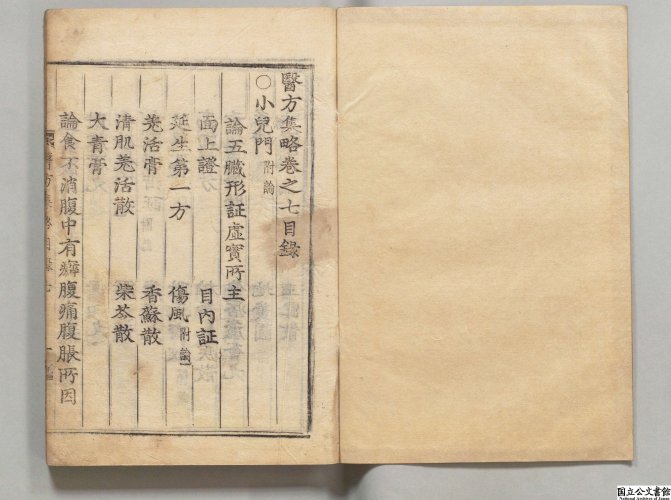 醫方集略卷之七目錄
○小兒門 附論
論五臟形証虛實所主
面上證 目內証
延生第一方 傷風 附論
羌活膏 香蘇散
清肌羌活散 柴苓散
大青膏
論食不消腹中有癖腹痛腹脹所因
醫方集略目錄七
国立公文書館
National Archives of Japan